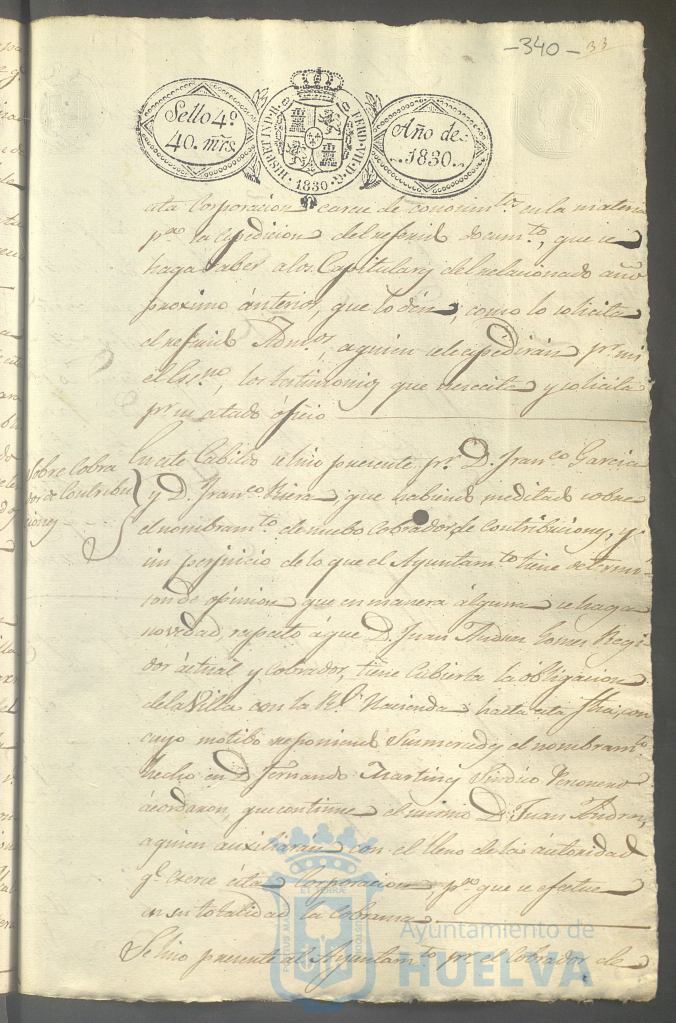 -340- 33
Sello 4º
40. mrs.
HISP. ET IND. R. FERD. VII. D. G. 1830
Año de
1830.
esta Corporacion carece de conocimto en la materia
pª la espedicion del referido docum.to, que se
haga saber a los Capitulares del relacionado año
proximo ánterior, que lo dén, como lo solicita
el referido Adm.or, a quien se le espedirán pr mi
el Es.no, los testimonios que necesita y solicita
pr su citado óficio
Sobre Cobra
dor de Contribu
ciones
En este Cabildo se hizo presente pr D. Fran.co Garcia
y D. Fran.co Riera que habiendo meditado sobre
el nombram.to de nuebo Cobrador de Contribuciones, y
sin perjuicio de lo que el Ayuntam.to tiene determi
son de opinion que en manera álguna se haga
novedad, respecto á que D. Juan Andres Gomes Regi
dor áctual y Cobrador, tiene cubierta la óbligacion
de la Villa con la Rl Hacienda hasta esta fha, con
cuyo motibo reponiendo Sus mercedes el nombram.to
hecho en D. Fernando Martinez Sindico Personero
ácordaron, que continue el mismo D. Juan Andres,
a quien auxiliaran con el lleno de la áutoridad
q.e exerce ésta Corporacion pª que se efectue
en su totalidad la Cobranza
Se hizo presente al Ayuntam.to pr el Cobrador de
PORTUS MARIS ET TERRAE CUSTODIA
Ayuntamiento de
HUELVA